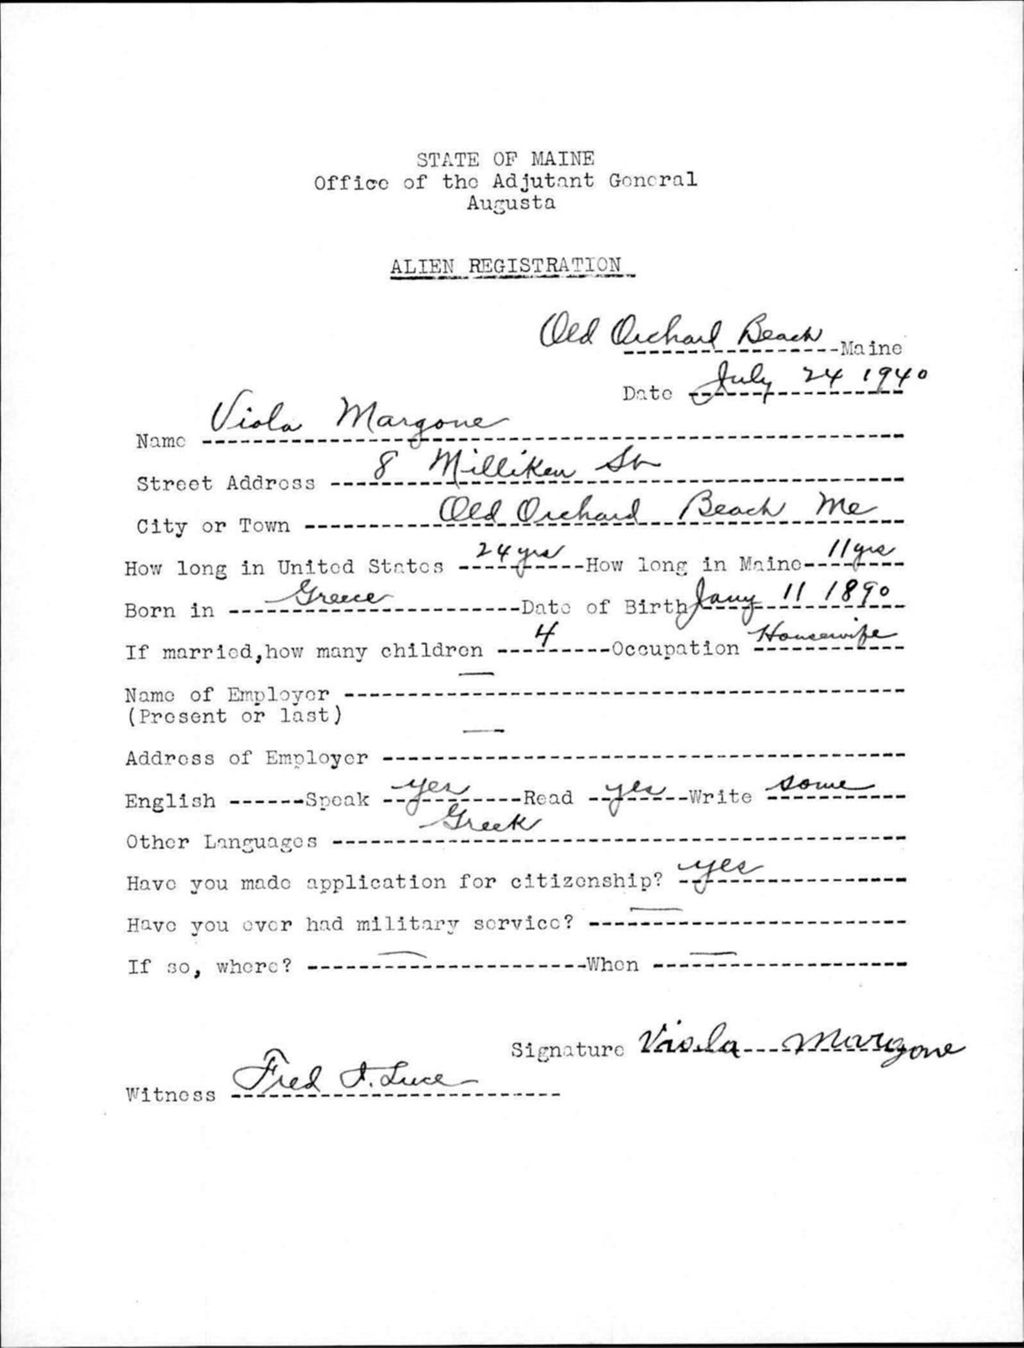 STATE OF MAINE
Office of the Adjutant General
Augusta
ALIEN REGISTRATION
Old Orchard Beach Maine
Date July 24 1940
Name Viola Margone
Street Address 8 Milliken St
City or Town Old Orchard Beach Me
How long in United States 24 yrs How long in Maine 11 yrs
Born in Greece Date of Birth Jany 11 1890
If married, how many children 4 Occupation Housewife
Name of Employer —
(Present or last)
Address of Employer —
English Speak yes Read yes Write some
Other Languages Greek
Have you made application for citizenship? yes
Have you ever had military service? —
If so, where? — When —
Signature Viola Margone
Witness Fred I. Luce